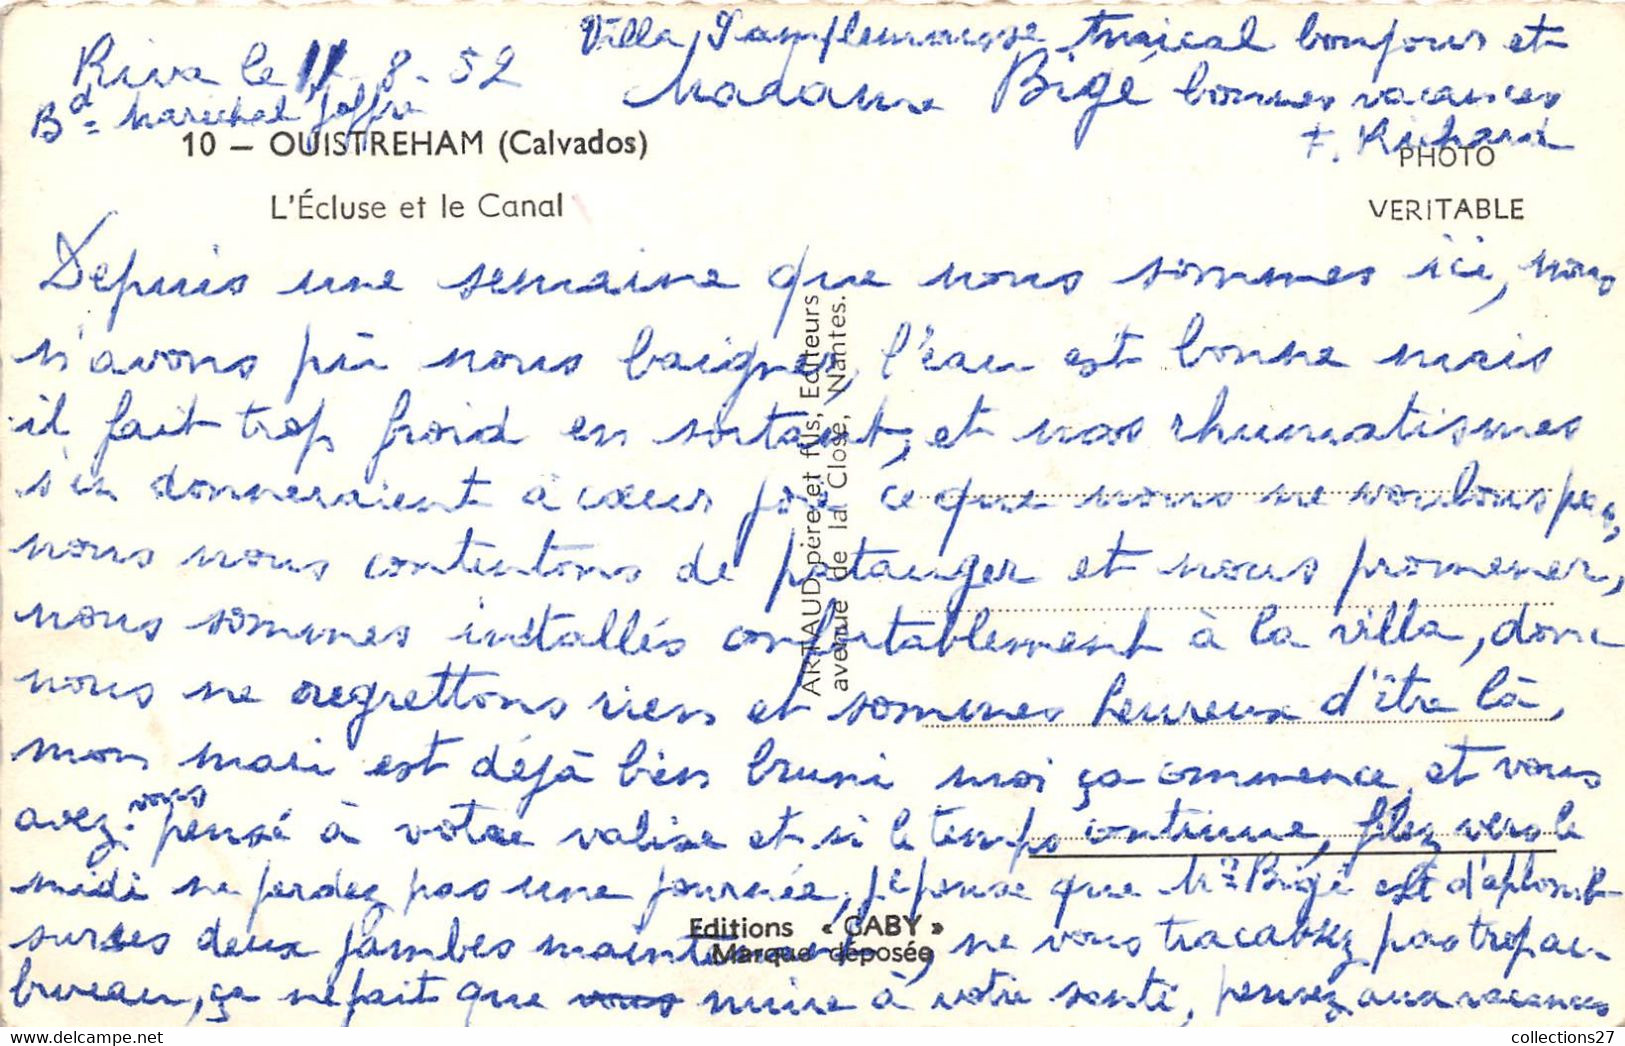 Riva le 11-8-52
Bd Maréchal Joffre
Villa, amical bonjour et
Madame Bigé bonnes vacances
F. Richard
10 – OUISTREHAM (Calvados)
L'Écluse et le Canal
PHOTO
VERITABLE
Depuis une semaine que nous sommes ici, nous
n'avons pû nous baigner, l'eau est bonne mais
il fait trop froid en sortant, et nos rhumatismes
s'en donneraient à cœur joie ce que nous ne voulons pas,
nous nous contentons de patauger et nous promener,
nous sommes installés confortablement à la villa, donc
nous ne regrettons rien et sommes heureux d'être là,
mon mari est déjà bien bruni moi ça commence, et vous
avez-vous pensé à votre valise et si le temps continue, filez vers le
midi ne perdez pas une journée, je pense que Mr Bigé est d'aplomb
sur ses deux jambes maintenant, ne vous tracassez pas trop au
bureau, ça ne fait que vous nuire à votre santé, pensez aux vacances
ARTAUD père et fils, Editeurs
avenue de la Close, Nantes.
Editions « GABY »
Marque déposée
collections27